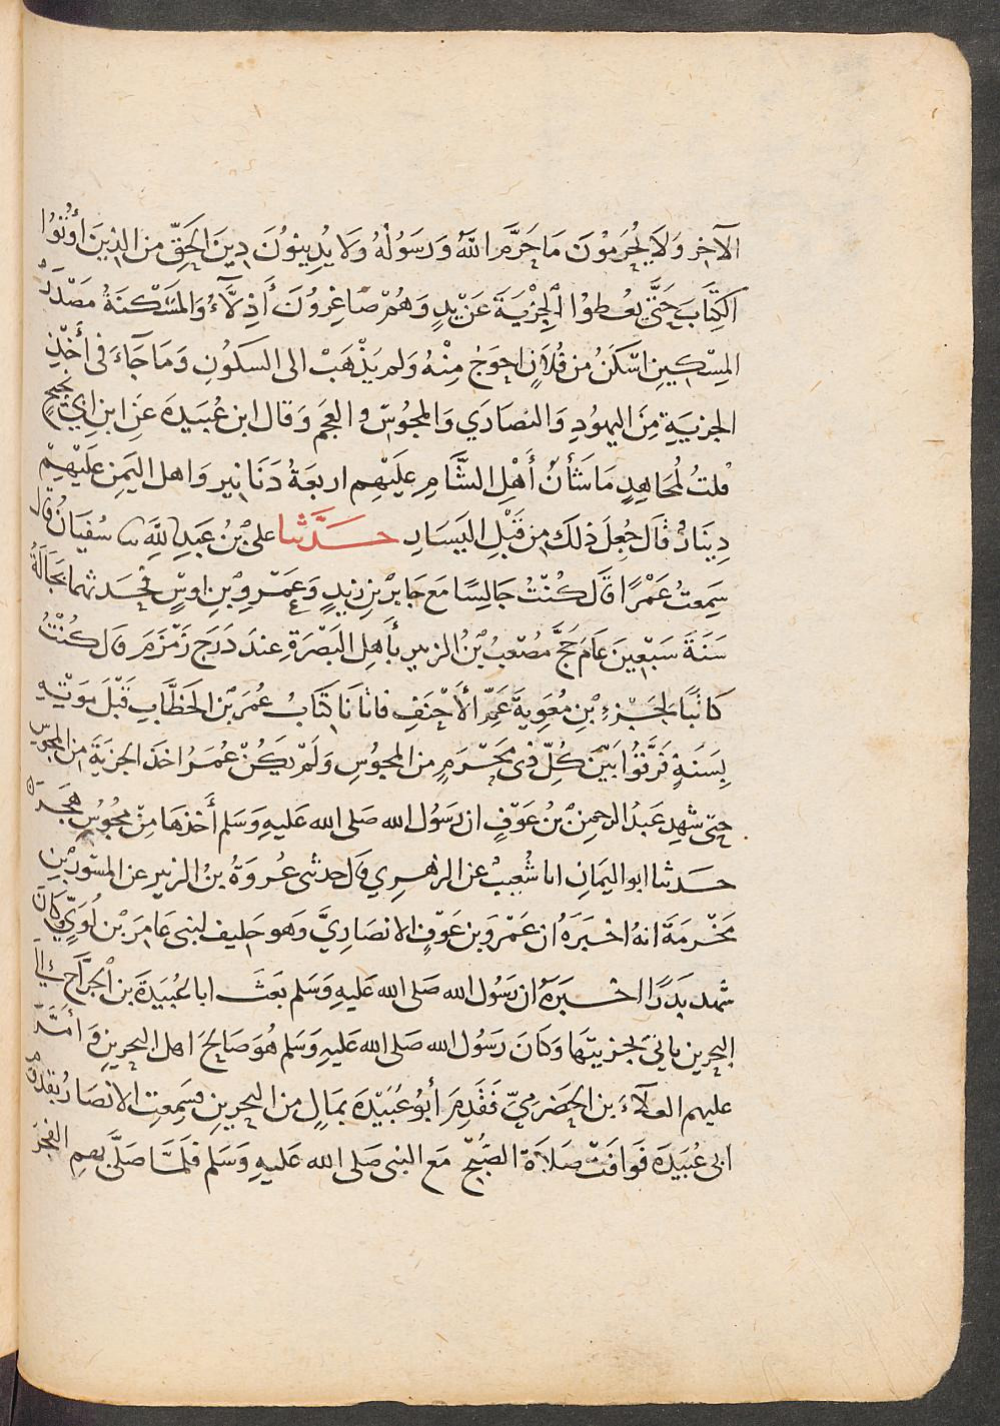 الآخِرِ وَلَا يُحَرِّمُونَ مَا حَرَّمَ اللَّهُ وَرَسُولُهُ وَلَا يَدِينُونَ دِينَ الحَقِّ من الذينَ أُوتُوا
الكِتَابَ حَتَّى يُعْطُوا الجِزْيَةَ عَنْ يَدٍ وَهُمْ صَاغِرُونَ أَذِلَّاءُ وَالمَسْكَنَةُ مَصْدَرُ
المِسْكِينِ اسْكَنُ من فُلَانٍ احوَجُ مِنْهُ ولم يَذْهَبْ الى السكُونِ وَمَا جَاءَ فى أَخْذِ
الجزيَةِ مِنَ اليهُودِ وَالنصَارَي وَالمجُوسِ و العجَم وَقال ابن عُيَيْنَةَ عَن ابنِ ابى نجيحٍ
قلتُ لمُجَاهِدٍ مَا شَأنُ أَهْلِ الشَّامِ عَلَيْهِم اربَعَةُ دَنَانِير وَاهل اليَمن عَلَيْهِمْ
دِينَارٌ قَالَ جُعِلَ ذلكَ من قِبَلِ اليَسَارِ حَدَّثنا على بْنُ عَبدِ اللَّهِ ثنا سُفيَانُ قال
سَمِعتُ عَمْرًا قَالَ كُنْتُ جَالِسًا مَعَ جَابر بْنِ زيدٍ وَعَمْرِو بْنِ اوسٍ فحَدثهما بَجَالَةُ
سَنَةَ سَبْعِينَ عَامَ حَجَّ مُصْعَبُ بْنُ الزبيرِ بأَهلِ البَصْرَةِ عندَ دَرَجِ زَمْزَمَ قال كُنْتُ
كاتبًا لجَزْءِ بْنِ مُعَوِيةَ عَمِّ الأَحْنَفِ فاتَانَا كتَابُ عُمَرَ بْن الخَطَّابِ قَبْلَ مَوْتِهِ
بِسَنَةٍ فَرَّقُوا بَيْنَ كُلِّ ذى مَحْرَمٍ من المجُوسِ وَلَمْ يَكُنْ عُمَرُ اخذَ الجزيَةَ من المجوس
حتى شهِدَ عَبدُ الرحمِن بْنُ عَوْفٍ ان رَسُولَ الله صَلى الله عَليهِ وَسَلم أَخذهَا مِنْ مجُوسِ هَجَرَ
حَدثنا ابو اليَمانِ انا شُعيبٌ عن الزهرِي قال حدثنى عُروَةُ بنُ الزبيرِ عن المسوَر بْنِ
مَخْرمَةَ انهُ اخبَرَهُ ان عَمْرَو بن عَوْفٍ الانصَارِيَّ وَهو حَليف لبنى عَامر بْن لُوَيٍّ وكَانَ
شهد بَدرًا اخبَرَهُ ان رَسُول الله صَلى الله عَليهِ وَسَلم بَعَثَ ابا عُبَيْدَةَ بن الجرَّاح الى
البحرين ياتى بجزيتهَا وَكَانَ رَسُول الله صَلى الله عَليهِ وَسَلم هُوَ صَالحَ اهل البحرينِ وَأَمَّرَ
عليهم العلَاءَ بن الحضرَمىِّ فقَدِمَ أَبُو عُبَيْدَة بمَالٍ من البحرينِ فسَمِعتِ الانصَارُ بقدُومِ
ابى عُبَيدَة فَوَافَتْ صَلَاةَ الصُبْحِ مَع النبى صَلى الله عَليهِ وَسَلم فَلمَّا صَلَّى بهمِ الفجْرَ